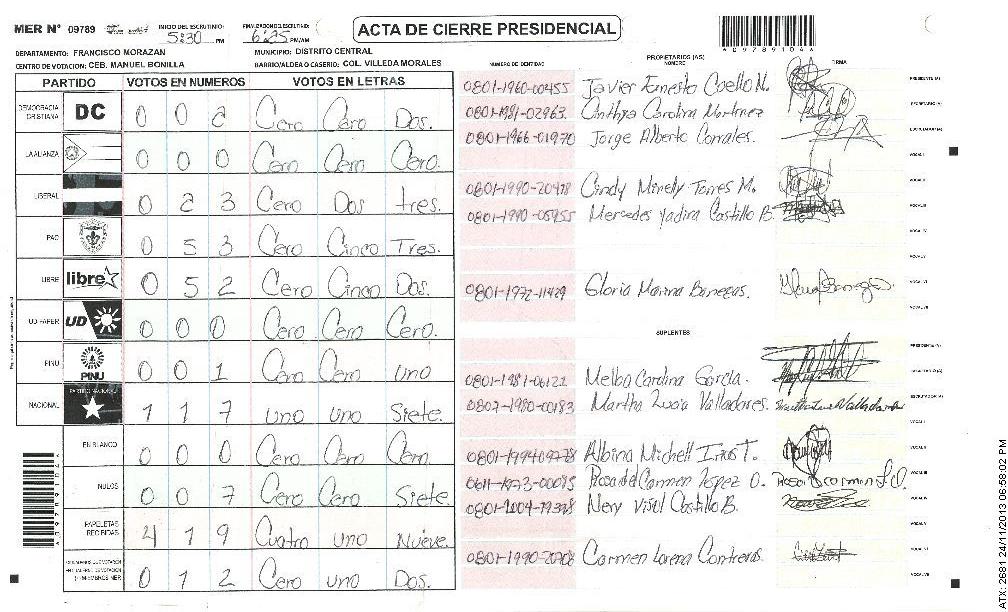 MER N° 09789
INICIO DEL ESCRUTINIO:
5:30 PM
FINALIZACION ESCRUTINIO:
6:25 PM/AM
ACTA DE CIERRE PRESIDENCIAL
4097891046
DEPARTAMENTO: FRANCISCO MORAZAN
MUNICIPIO: DISTRITO CENTRAL
CENTRO DE VOTACION: CEB. MANUEL BONILLA
BARRIO/ALDEA O CASERIO: COL. VILLEDA MORALES
PARTIDO VOTOS EN NUMEROS VOTOS EN LETRAS
DEMOCRACIA CRISTIANA DC 0 0 2 Cero Cero Dos.
LA ALIANZA 0 0 0 Cero Cero Cero.
LIBERAL 0 2 3 Cero Dos tres.
PAC 0 5 3 Cero Cinco Tres.
LIBRE libre 0 5 2 Cero Cinco Dos.
UD FAPER UD 0 0 0 Cero Cero Cero.
PINU PINU 0 0 1 Cero Cero uno
NACIONAL PARTIDO NACIONAL 1 1 7 uno uno Siete.
EN BLANCO 0 0 0 Cero Cero Cero
NULOS 0 0 7 Cero Cero Siete
PAPELETAS RECIBIDAS 4 1 9 Cuatro uno Nueve.
0 1 2 Cero uno Dos.
NUMERO DE IDENTIDAD
PROPIETARIOS (AS)
NOMBRE
FIRMA
0801-1960-00455 Javier Ernesto Coello M. PRESIDENTE (A)
0801-1981-02963 Cinthya Carolina Martinez SECRETARIO (A)
0801-1966-01970 Jorge Alberto Corrales. ESCRUTADOR (A)
VOCAL I
0801-1990-20478 Cindy Minely Torres M. VOCAL II
0801-1990-05955 Mercedes Yadira Castillo B. VOCAL III
VOCAL IV
VOCAL V
0801-1972-11429 Gloria Marina Banegas. VOCAL VI
VOCAL VII
SUPLENTES
PRESIDENTE (A)
0801-1981-06121 Melba Carolina Garcia. SECRETARIO (A)
0802-1980-00183 Martha Lucia Valladares. ESCRUTADOR (A)
VOCAL I
Albina Michell VOCAL II
0611-1973-00095 Rosa del Carmen Lopez O. VOCAL III
Nery Castillo B. VOCAL IV
VOCAL V
Carmen Lorena Contreras. VOCAL VI
VOCAL VII
ATX: 2681 24/11/2013 06:58:02 PM